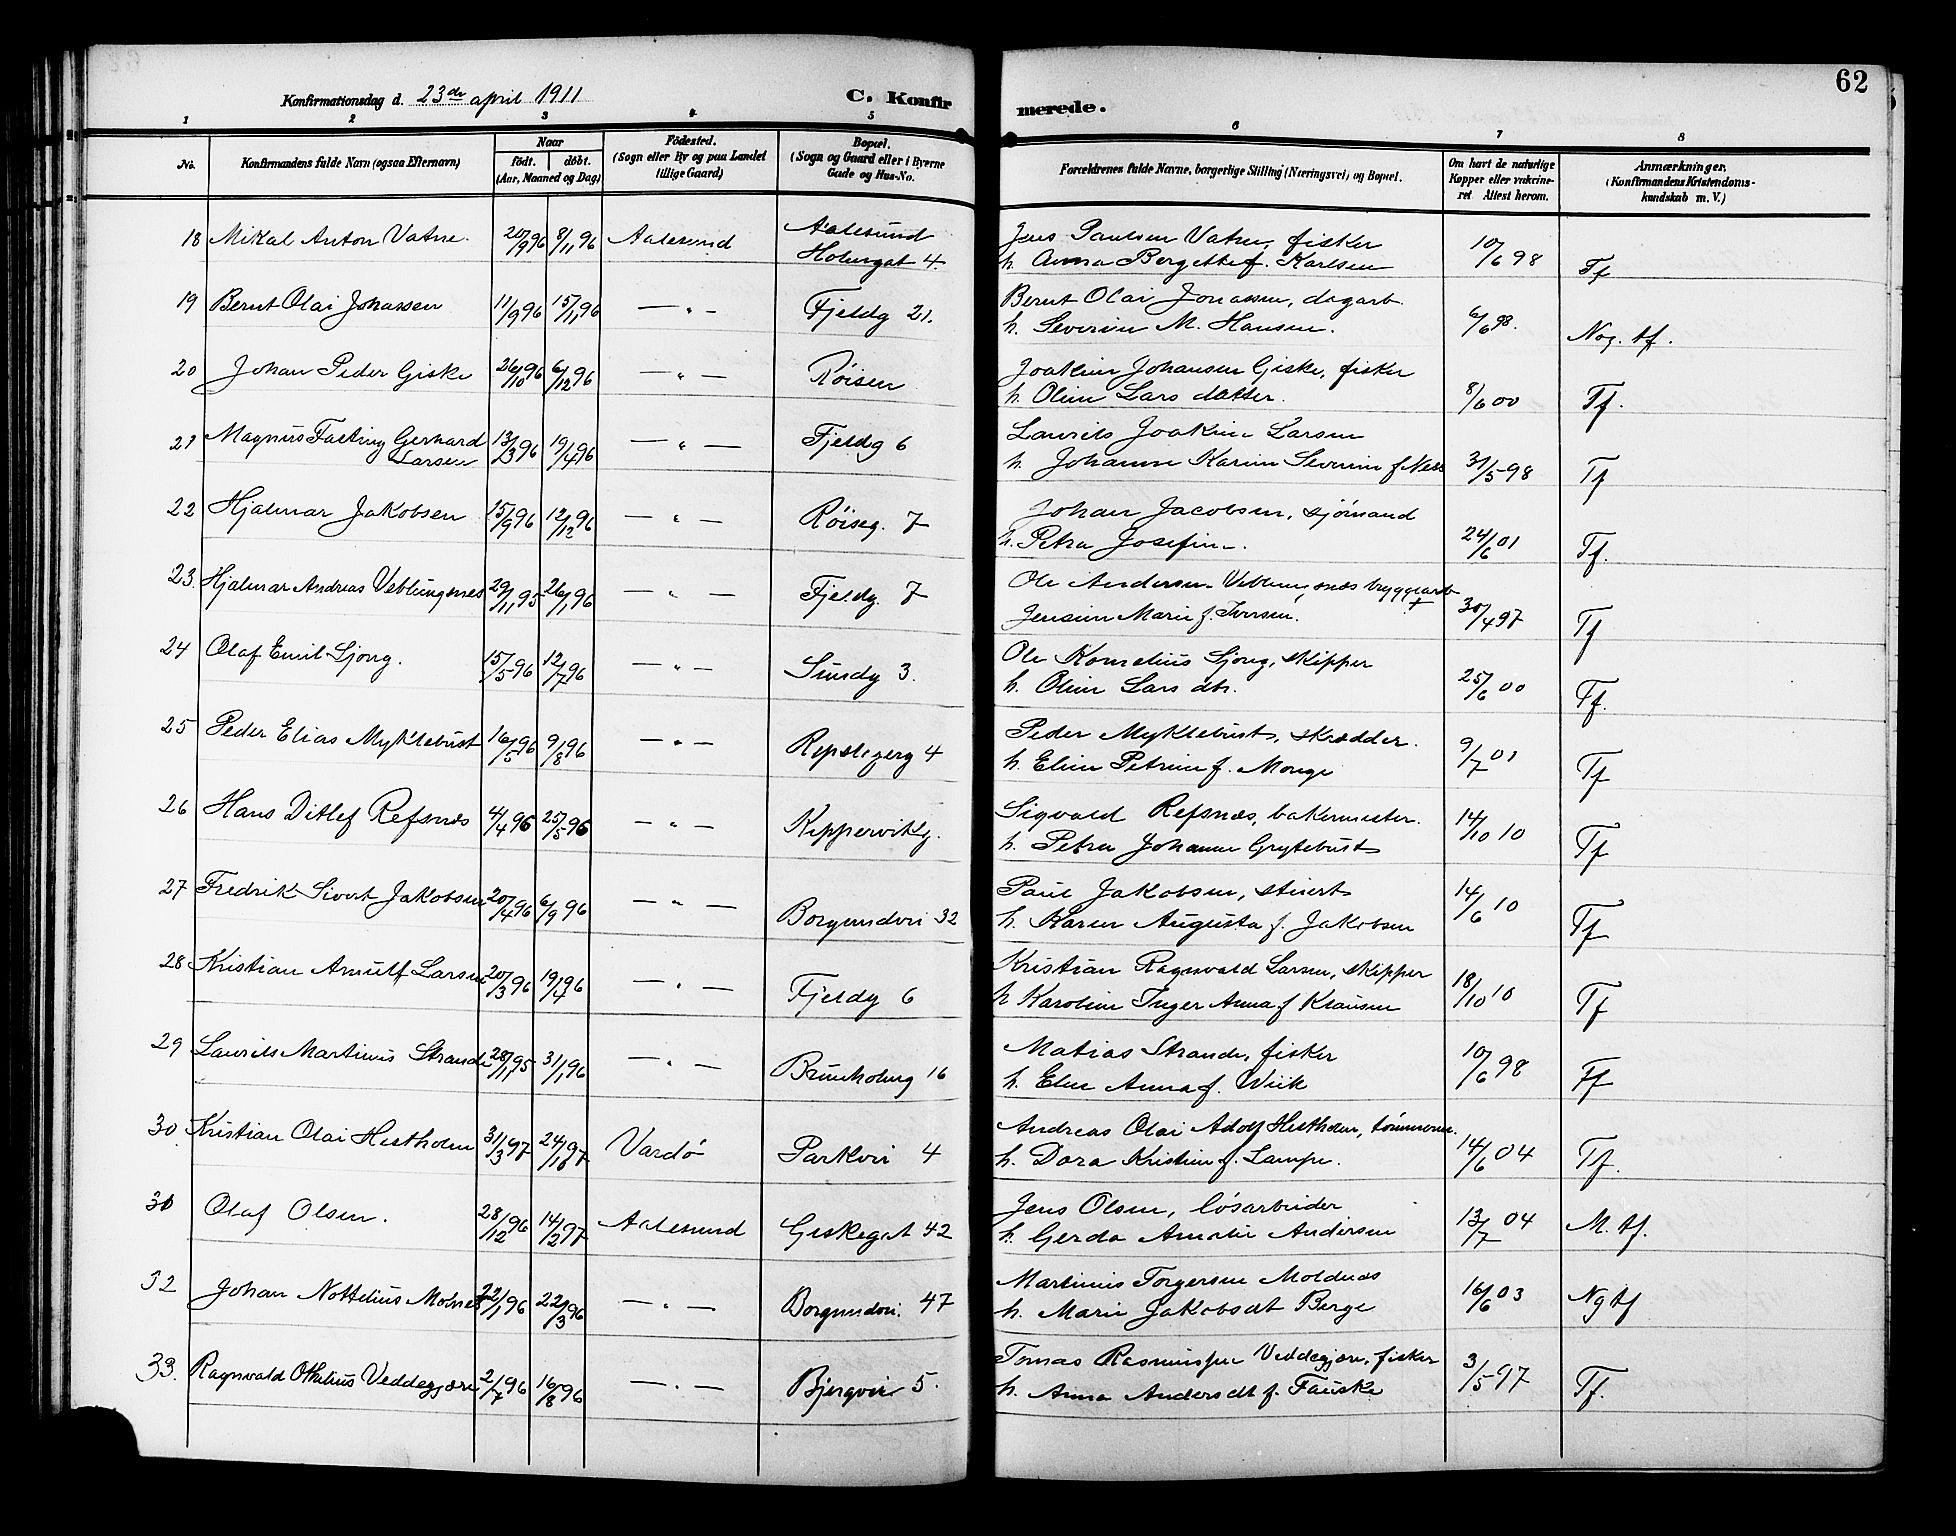 62
Konfirmationsdag d. 23de april 1911
C. Konfirmerede.
1 2 3 4 5 6 7 8
No.
Konfirmandens fulde Navn (ogsaa Efternavn)
Naar
födt. döbt.
(Aar, Maaned og Dag)
Födested.
(Sogn eller By og paa Landet
tillige Gaard)
Bopæl.
(Sogn og Gaard eller i Byerne
Gade og Hus-No.
Forældrenes fulde Navne, borgerlige Stilling (Næringsvei) og Bopæl.
Om havt de naturlige
Kopper eller vakcine-
ret Attest herom.
Anmærkninger.
(Konfirmandens Kristendoms-
kundskab m. V.)
18 Mikal Anton Vatne. 20/9 96 8/11 96 Aalesund Aalesund Holmgat 4. Jens Paulsen Vatne, fisker 10/6 98 Tf
h. Anna Bergette f. Karlsen
19 Bernt Olai Jonassen 11/9 96 15/11 96 — " — Fjeldg 21. Bernt Olai Jonassen, dagarb. 6/6 98. Nog. tf.
h. Severine M. Hansen.
20 Johan Peder Giske 26/10 96 6/12 96 — " — Röisen Joakim Johansen Giske, fisker 8/6 00 Tf.
h. Oline Lars datter.
21 Magnus Fasting Gerhard Larsen 13/3 96 19/4 96 — " — Fjeldg 6 Laurits Joakim Larsen 31/5 98 Tf
h. Johanne Karine Severine f Ness
22 Hjalmar Jakobsen 15/9 96 12/12 96 — " — Röiseg. 7 Johan Jacobsen, sjömand 24/6 01 Tf.
h. Petra Josefine.
23. Hjalmar Andreas Veblungsnes 29/11 95 26/1 96 — " — Fjeldg. 7 Ole Andersen Veblungsnæs bryggearb 30/4 97 Tf
Jensine Marie f. Iversen. +
24 Olaf Emil Ljong. 15/5 96 12/7 96 — " — Sundg 3. Ole Kornelius Ljong, skipper 25/6 00 Tf.
h. Oline Lars dtr.
25 Peder Elias Myklebust 16/5 96 9/8 96 — " — Repslagerg 4 Peder Myklebust, skrædder. 9/7 01 Tf
h. Eline Petrine f. Monge
26 Hans Ditlef Refsnæs 4/4 96 25/5 96 — " — Kippervikg. Sigvald Refsnæs, bakermester. 14/10 10 Tf
h. Petra Johanne Grytebust
27 Fredrik Sivert Jakobsen 20/4 96 6/9 96 — " — Borgundvei 32 Paul Jakobsen, stuert 14/6 10 Tf
h. Karen Augusta f. Jakobsen
28 Kristian Arnulf Larsen 20/3 96 19/4 96 — " — Fjeldg 6 Kristian Ragnvald Larsen, skipper 18/10 10 Tf
h Karoline Inger Anna f Klausen
29 Laurits Martinus Strande 28/11 95 31/1 96 — " — Brunholmg 16 Matias Strande, fisker 10/6 98 Tf
h. Elen Anna f. Wiik
30. Kristian Olai Hestholm 31/3 97 24/10 97 Vardö Parkvei 4 Andreas Olai Adolf Hestholm, tömmerm. 14/6 04 Tf.
h. Dora Kristine f. Lampe.
31 Olaf Olsen. 28/12 96 14/2 97 Aalesund Giskegat 42 Jens Olsen, lösarbeider 13/7 04 M. tf.
h. Gerda Amalie Andersen
32 Johan Nottelius Molnes 22/1 96 22/3 96 — " — Borgundvei. 47 Martinus Torgersen Moldnæs 16/6 03 Ng tf
h. Marie Jakobsdt Berge
33. Ragnvald Othelius Veddegjærde 2/7 96 16/8 96 — " — Bjergvei 5. Tomas Rasmussen Veddegjær, fisker 3/5 97 Tf.
h. Anna Andersdt f. Fauske